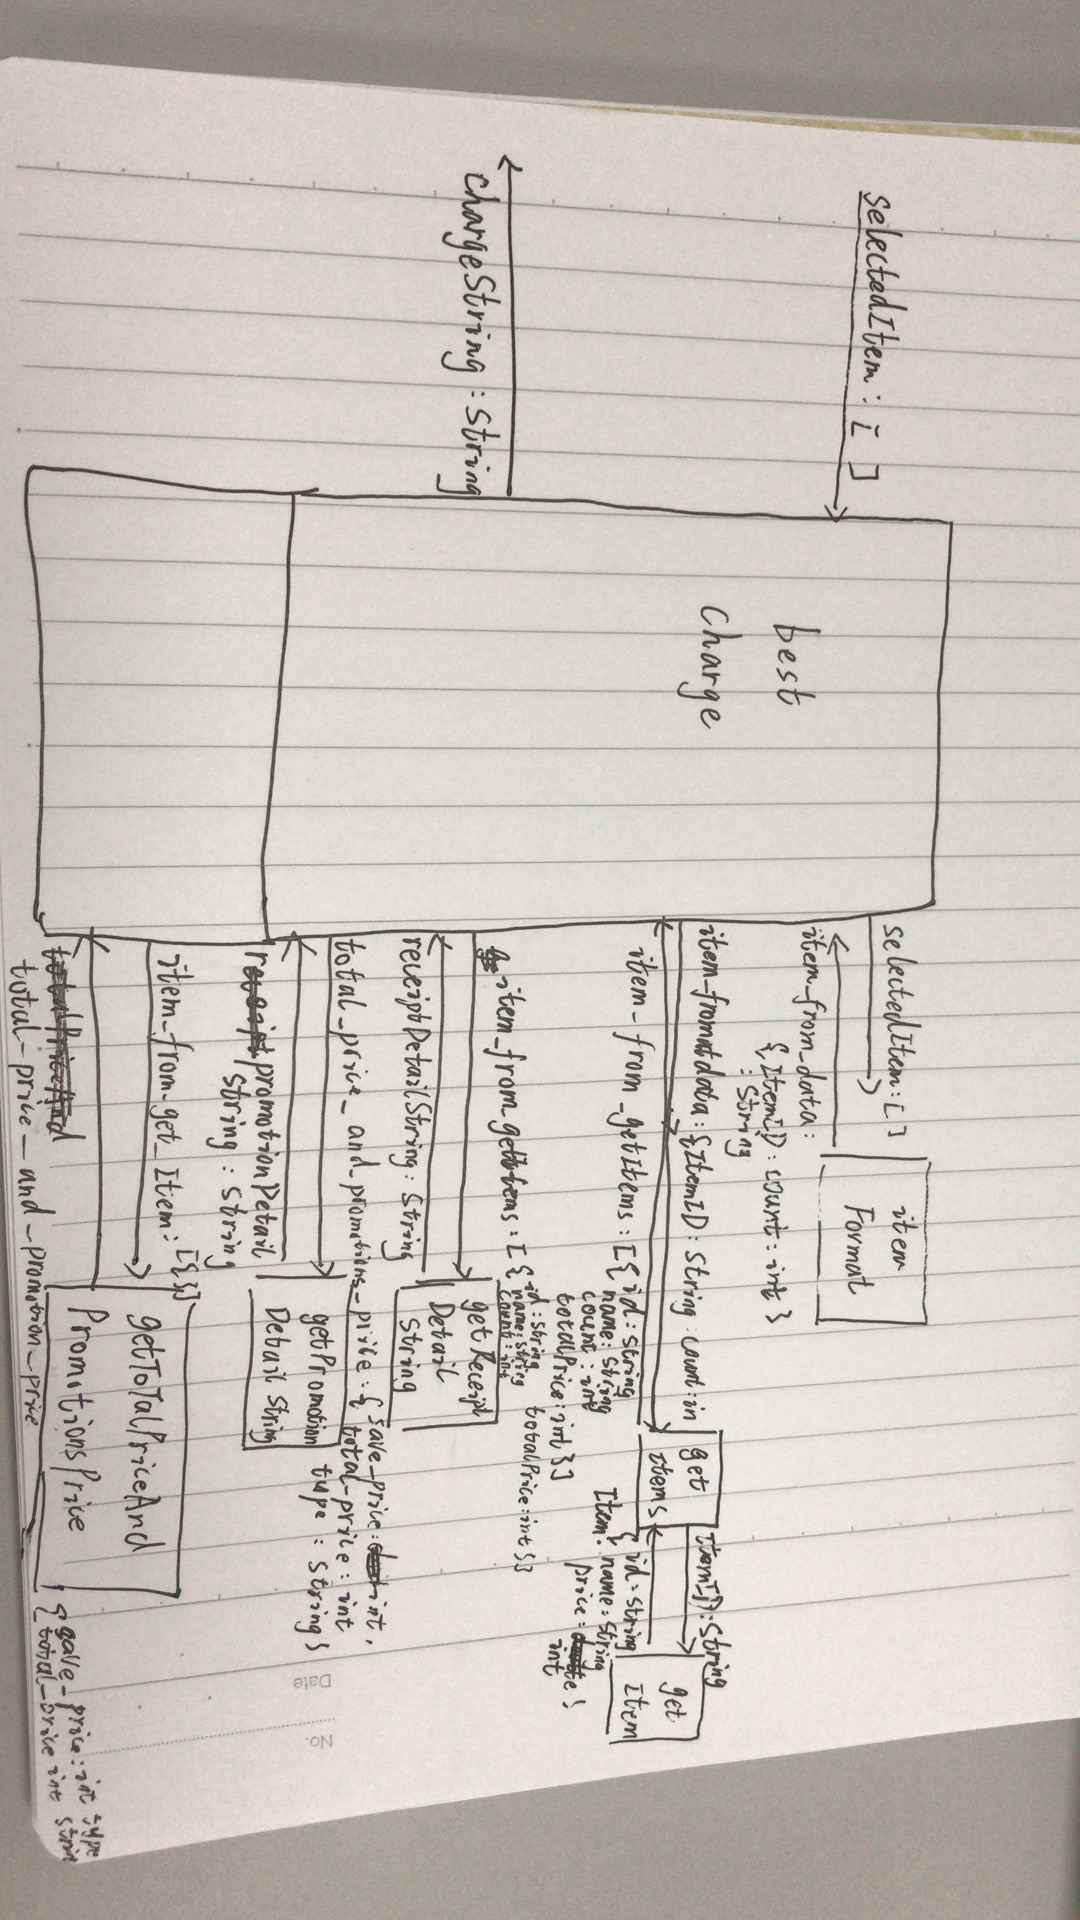 selectedItem : [ ]
chargeString : string
best
charge
selectedItem:[ ]
item_from_data:
{ItemID : count : int }
: string
item
Format
item_fromatdata : {ItemID : string : count : in
item_from_getItems : [{id : string
name : string
count : int
totalPrice : int }]
get
items
ItemID : string
{ id = string
Item: name : string
price =
int
}
get
Item
item_from_getItems : [{ id : string
name : string
count : int
totalPrice : int }]
receiptDetailString : string
getReceipt
Detail
string
total_price_and_promotions_price : { save_price : int,
total_price : int
type : string }
promotionDetail
string : string
getPromotion
Detail string
item_from_get_Item : [{}]
total_price_and_promotion_price
getToTalPriceAnd
PromotionsPrice
{ save_price : int type
total_price int strin
Date
No.